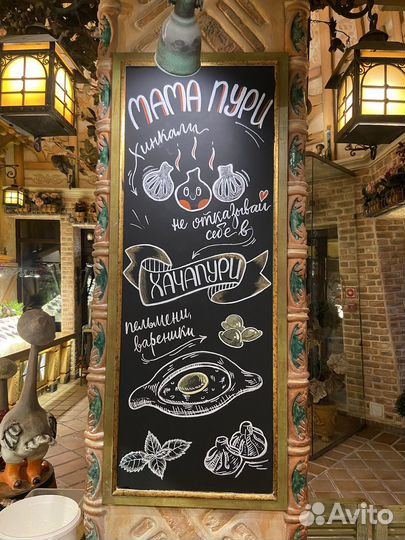 МАМА ПУРИ
Хинкали
не отказывай
себе в
ХАЧАПУРИ
пельмени,
вареники
Avito